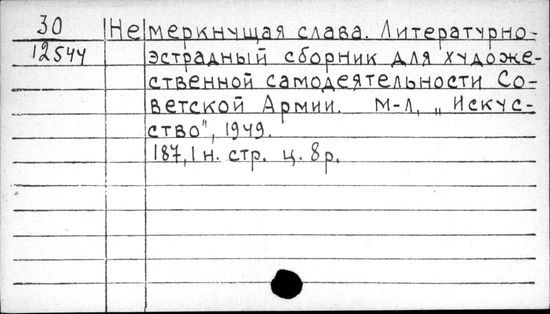 30 Немеркнущая слава. Литературно-
12544 эстрадный сборник для художе-
ственной самодеятельности Со-
ветской Армии. М-Л, „Искус-
ство", 1949.
187,1 н. стр. ц. 8р.